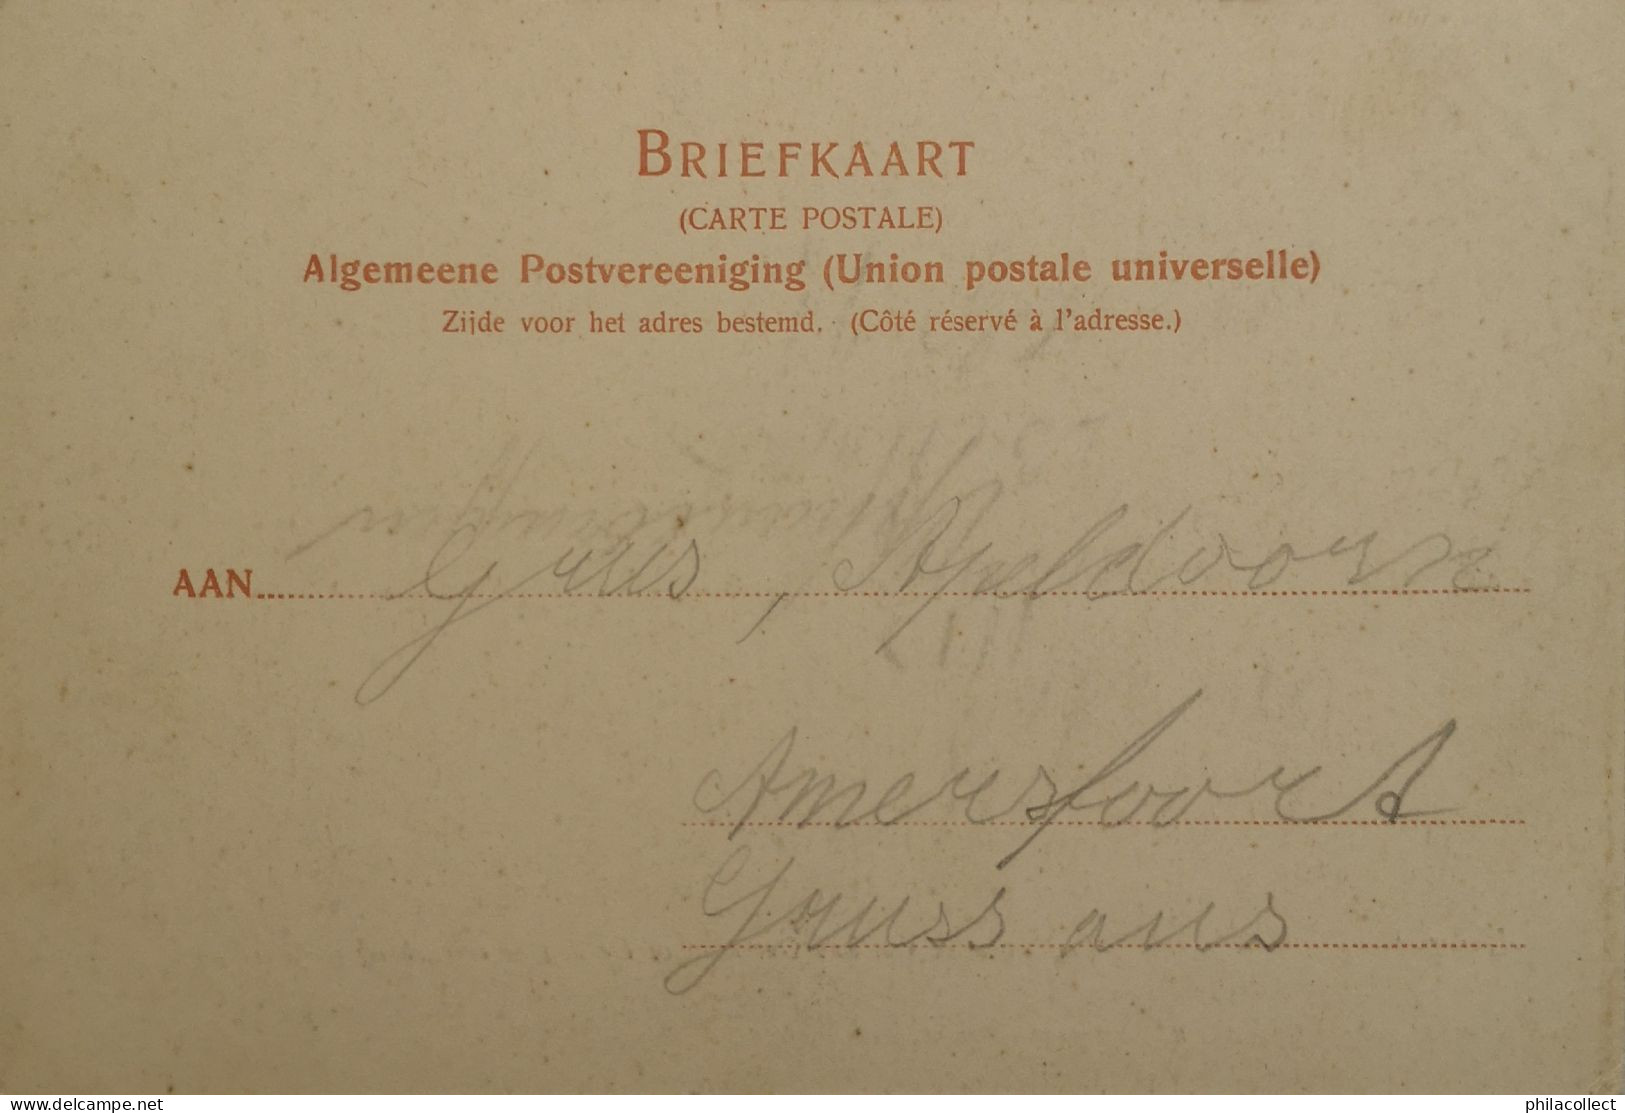 BRIEFKAART
(CARTE POSTALE)
Algemeene Postvereeniging (Union postale universelle)
Zijde voor het adres bestemd. (Côté réservé à l'adresse.)
AAN Gruss, Apeldoorn
Amersfoort
Gruss aus
www.delcampe.net
philacollect